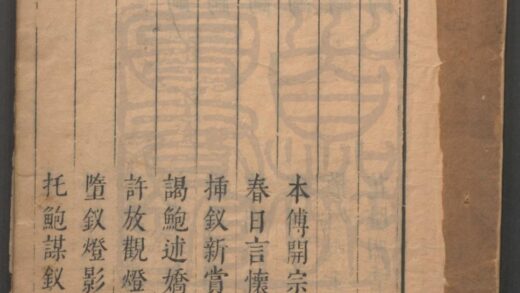 本傳開宗
春日言懷
挿釵新賞
謁鮑述嬌
許放觀燈
墮釵燈影
托鮑謀釵